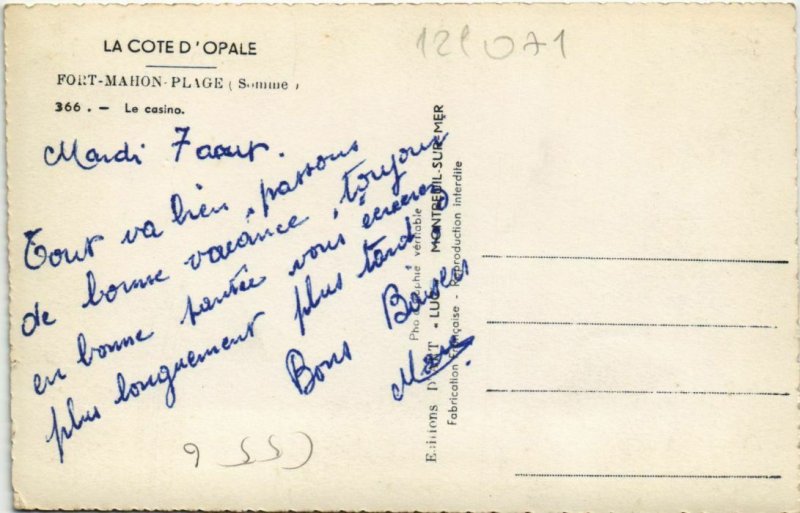 LA COTE D'OPALE
FORT-MAHON-PLAGE (Somme)
366. — Le casino.
Mardi 7 aout.
Tout va bien, passons
de bonne vacance, toujours
en bonne santée vous écrirons
plus longuement plus tard
Bons Baisers
Marc
Editions D'ART « LUC » MONTREUIL-SUR-MER
Photographie véritable
Fabrication Française - Reproduction interdite